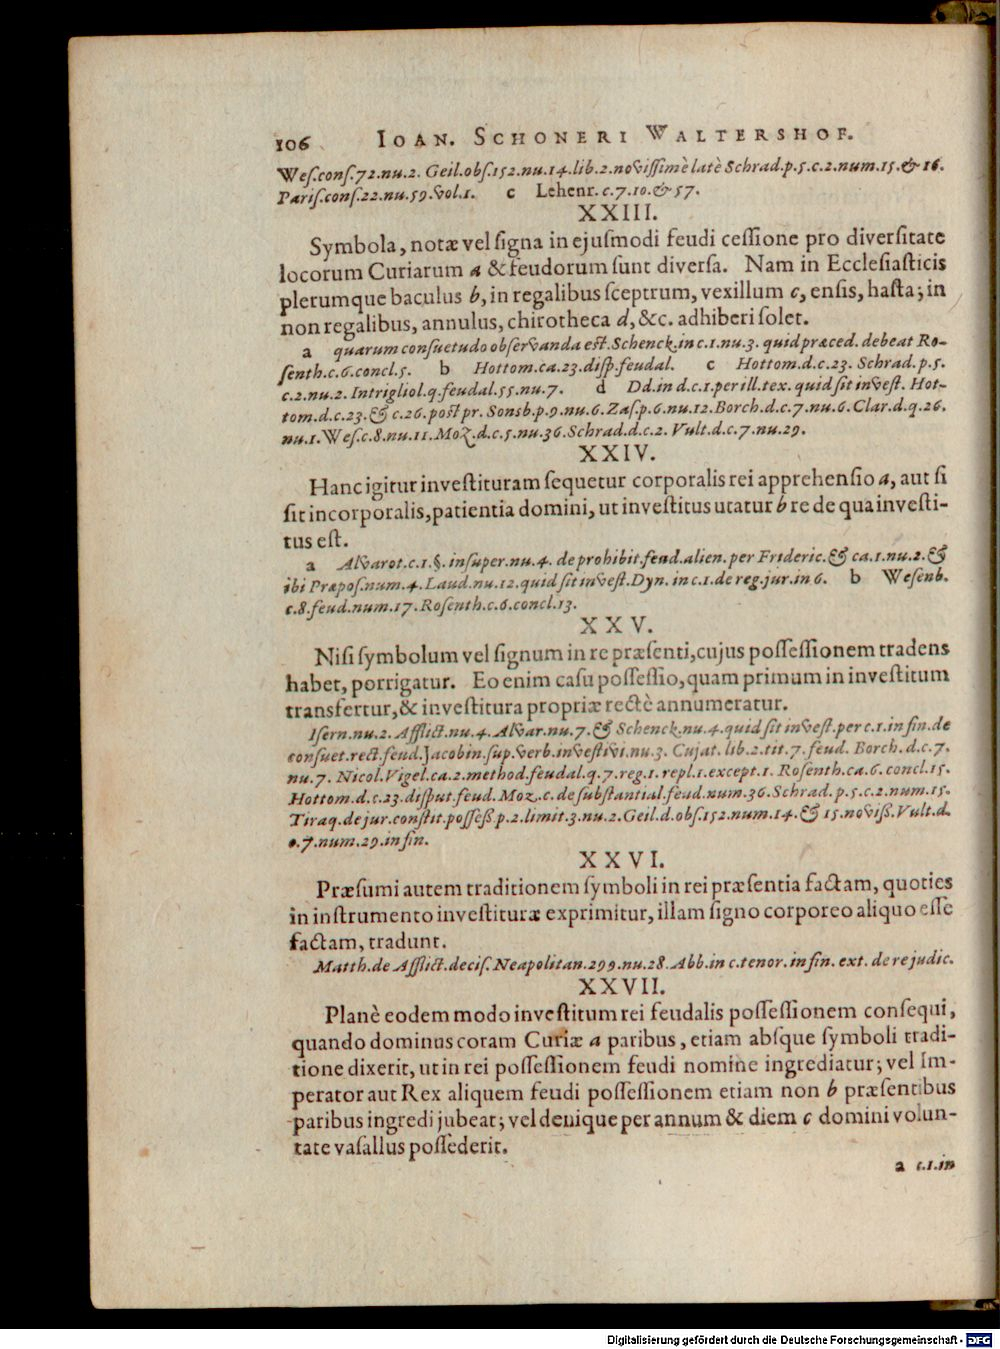 106 IOAN. SCHONERI WALTERSHOF.
Wes. cons. 72. nu. 2. Geil. obs. 152. nu. 14. lib. 2. novissimè latè Schrad. p. 5. c. 2. num. 15. & 16.
Paris. cons. 22. nu. 59. vol. 1. c Lehenr. c. 7. 10. & 57.
XXIII.
Symbola, notæ vel signa in ejusmodi feudi cessione pro diversitate
locorum Curiarum a & feudorum sunt diversa. Nam in Ecclesiasticis
plerumque baculus b, in regalibus sceptrum, vexillum c, ensis, hasta; in
non regalibus, annulus, chirotheca d, &c. adhiberi solet.
a quarum consuetudo observanda est. Schenck. in c. 1. nu. 3. quid præced. debeat Ro-
senth. c. 6. concl. 5. b Hottom. ca. 23. disp. feudal. c Hottom. d. c. 23. Schrad. p. 5.
c. 2. nu. 2. Intrigliol. q. feudal. 55. nu. 7. d Dd. in d. c. 1. per ill. tex. quid sit invest. Hot-
tom. d. c. 23. & c. 26. post pr. Sonsb. p. 9. nu. 6. Zas. p. 6. nu. 12. Borch. d. c. 7. nu. 6. Clar. d. q. 26.
nu. 1. Wes. c. 8. nu. 11. Moz. d. c. 5. nu. 36. Schrad. d. c. 2. Vult. d. c. 7. nu. 29.
XXIV.
Hanc igitur investituram sequetur corporalis rei apprehensio a, aut si
sit incorporalis, patientia domini, ut investitus utatur b re de qua investi-
tus est.
a Alvarot. c. 1. §. insuper. nu. 4. de prohibit. feud. alien. per Frideric. & ca. 1. nu. 2. &
ibi Præpos. num. 4. Laud. nu. 12. quid sit invest. Dyn. in c. 1. de reg. jur. in 6. b Wesenb.
c. 8. feud. num. 17. Rosenth. c. 6. concl. 13.
XXV.
Nisi symbolum vel signum in re præsenti, cujus possessionem tradens
habet, porrigatur. Eo enim casu possessio, quam primum in investitum
transfertur, & investitura propriæ rectè annumeratur.
Isern. nu. 2. Afflict. nu. 4. Alvar. nu. 7. & Schenck. nu. 4. quid sit invest. per c. 1. in fin. de
consuet. rect. feud. Jacobin. sup. verb. investivi. nu. 3. Cujat. lib. 2. tit. 7. feud. Borch. d. c. 7.
nu. 7. Nicol. Vigel. ca. 2. method. feudal. q. 7. reg. 1. repl. 1. except. 1. Rosenth. ca. 6. concl. 15.
Hottom. d. c. 23. disput. feud. Moz. c. de substantial. feud. num. 36. Schrad. p. 5. c. 2. num. 15.
Tiraq. de jur. constit. possess. p. 2. limit. 3. nu. 2. Geil. d. obs. 152. num. 14. & 15. noviss. Vult. d.
c. 7. num. 29. in fin.
XXVI.
Præsumi autem traditionem symboli in rei præsentia factam, quoties
in instrumento investituræ exprimitur, illam signo corporeo aliquo esse
factam, tradunt.
Matth. de Afflict. decis. Neapolitan. 299. nu. 28. Abb. in c. tenor. in fin. ext. de re judic.
XXVII.
Planè eodem modo investitum rei feudalis possessionem consequi,
quando dominus coram Curiæ a paribus, etiam absque symboli tradi-
tione dixerit, ut in rei possessionem feudi nomine ingrediatur; vel Im-
perator aut Rex aliquem feudi possessionem etiam non b præsentibus
paribus ingredi jubeat; vel denique per annum & diem c domini volun-
tate vasallus possederit.
a c. 1. in
Digitalisierung gefördert durch die Deutsche Forschungsgemeinschaft - DFG